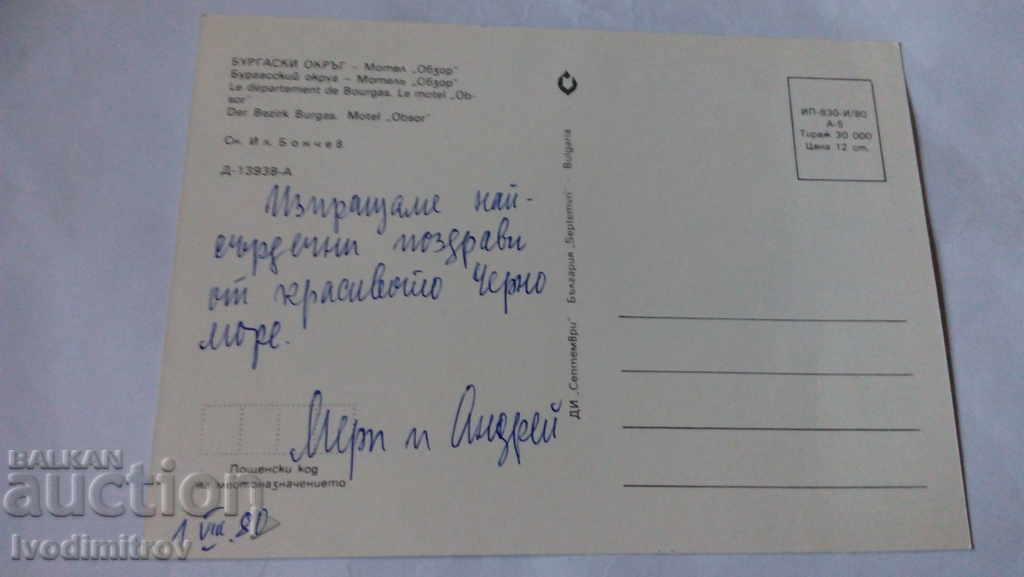 БУРГАСКИ ОКРЪГ – Мотел „Обзор"
Бургасский округ – Мотель „Обзор"
Le département de Bourgas. Le motel „Ob-
sor"
Der Bezirk Burgas. Motel „Obsor"
Сн. Ил. Бончев
Д-13938-А
Изпращаме най-
сърдечни поздрави
от красивото Черно
море.
Мери и Андрей
Пощенски код
на местоназначението
1 VIII. 80
ДИ „Септември" България „Septemvri" Bulgaria
ИП-830-И/80
А-5
Тираж 30 000
Цена 12 ст.
BALKAN
auction
Ivodimitrov